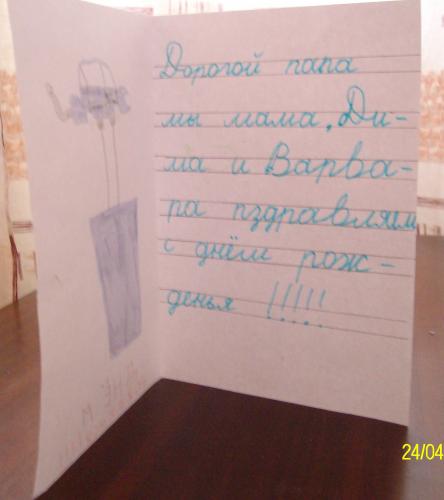 Дорогой папа
мы мама, Ди-
ма и Варва-
ра пздравляем
с днём рож-
денья !!!!!
24/04